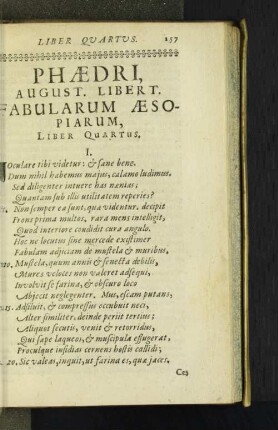 LIBER QUARTUS. 257
PHÆDRI,
AUGUST. LIBERT.
FABULARUM ÆSO-
PIARUM,
LIBER QUARTUS.
I.
Joculare tibi videtur: & sane bene,
Dum nihil habemus majus, calamo ludimus.
Sed diligenter intuere has nænias;
Quantam sub illis utilitatem reperies?
Non semper ea sunt, quæ videntur, decipit
Frons prima multos, rara mens intelligit,
Quod interiore condidit cura angulo.
Hoc ne locutus sine mercede existimer
Fabulam adjiciam de mustela & muribus.
Mustela, quum annis & senecta debilis,
Mures veloces non valeret adsequi,
Involvit se farina, & obscuro loco
Abjecit neglegenter. Mus, escam putans,
Adsiluit, & compressus occubuit neci,
Alter similiter, deinde periit tertius;
Aliquot secutis, venit & retorridus,
Qui sæpe laqueos, & muscipula effugerat,
Proculque insidias cernens hostis callidi;
20. Sic valeas, inquit, ut farina es, quæ jaces.